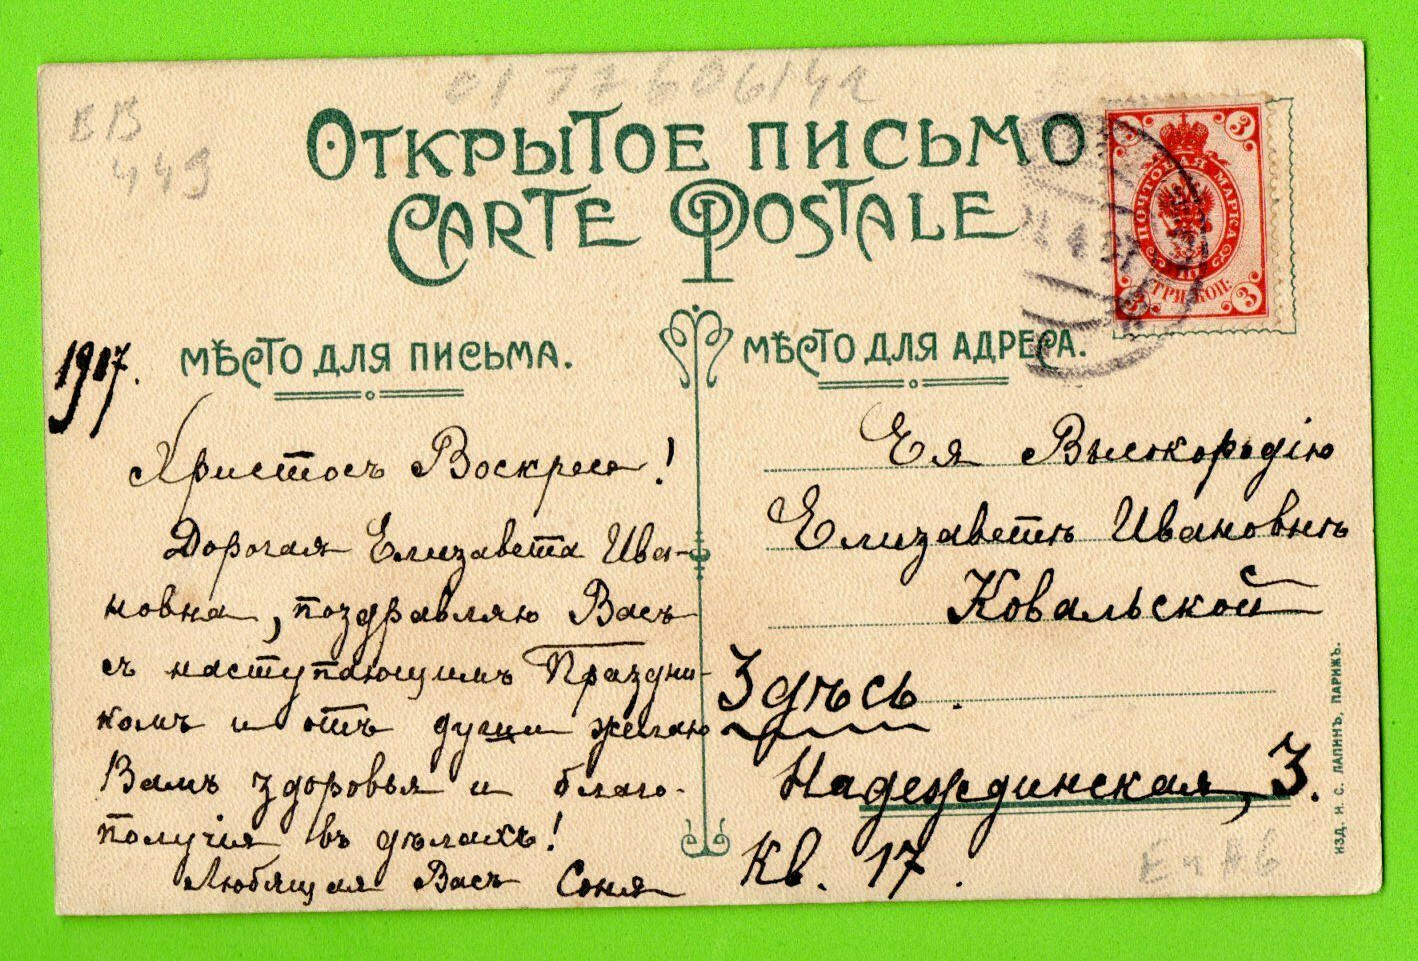 ВВ
449
ОТКРЫТОЕ ПИСЬМО
CARTE POSTALE
3 3
ПОЧТОВАЯ МАРКА
ТРИ КОП.
3 3
1907.
МѢСТО ДЛЯ ПИСЬМА.
Христосъ Воскресе!
Дорогая Елизавета Ива-
новна, поздравляю Васъ
съ наступающимъ Праздни-
комъ и отъ души желаю
Вамъ здоровья и благо-
получія въ дѣлахъ!
Любящая Васъ Соня
МѢСТО ДЛЯ АДРЕСА.
Ея Высокородію
Елизаветѣ Ивановнѣ
Ковальской
Здѣсь.
Надеждинская, 3.
Кв. 17.
ИЗД. И. С. ЛАПИНЪ, ПАРИЖЪ.